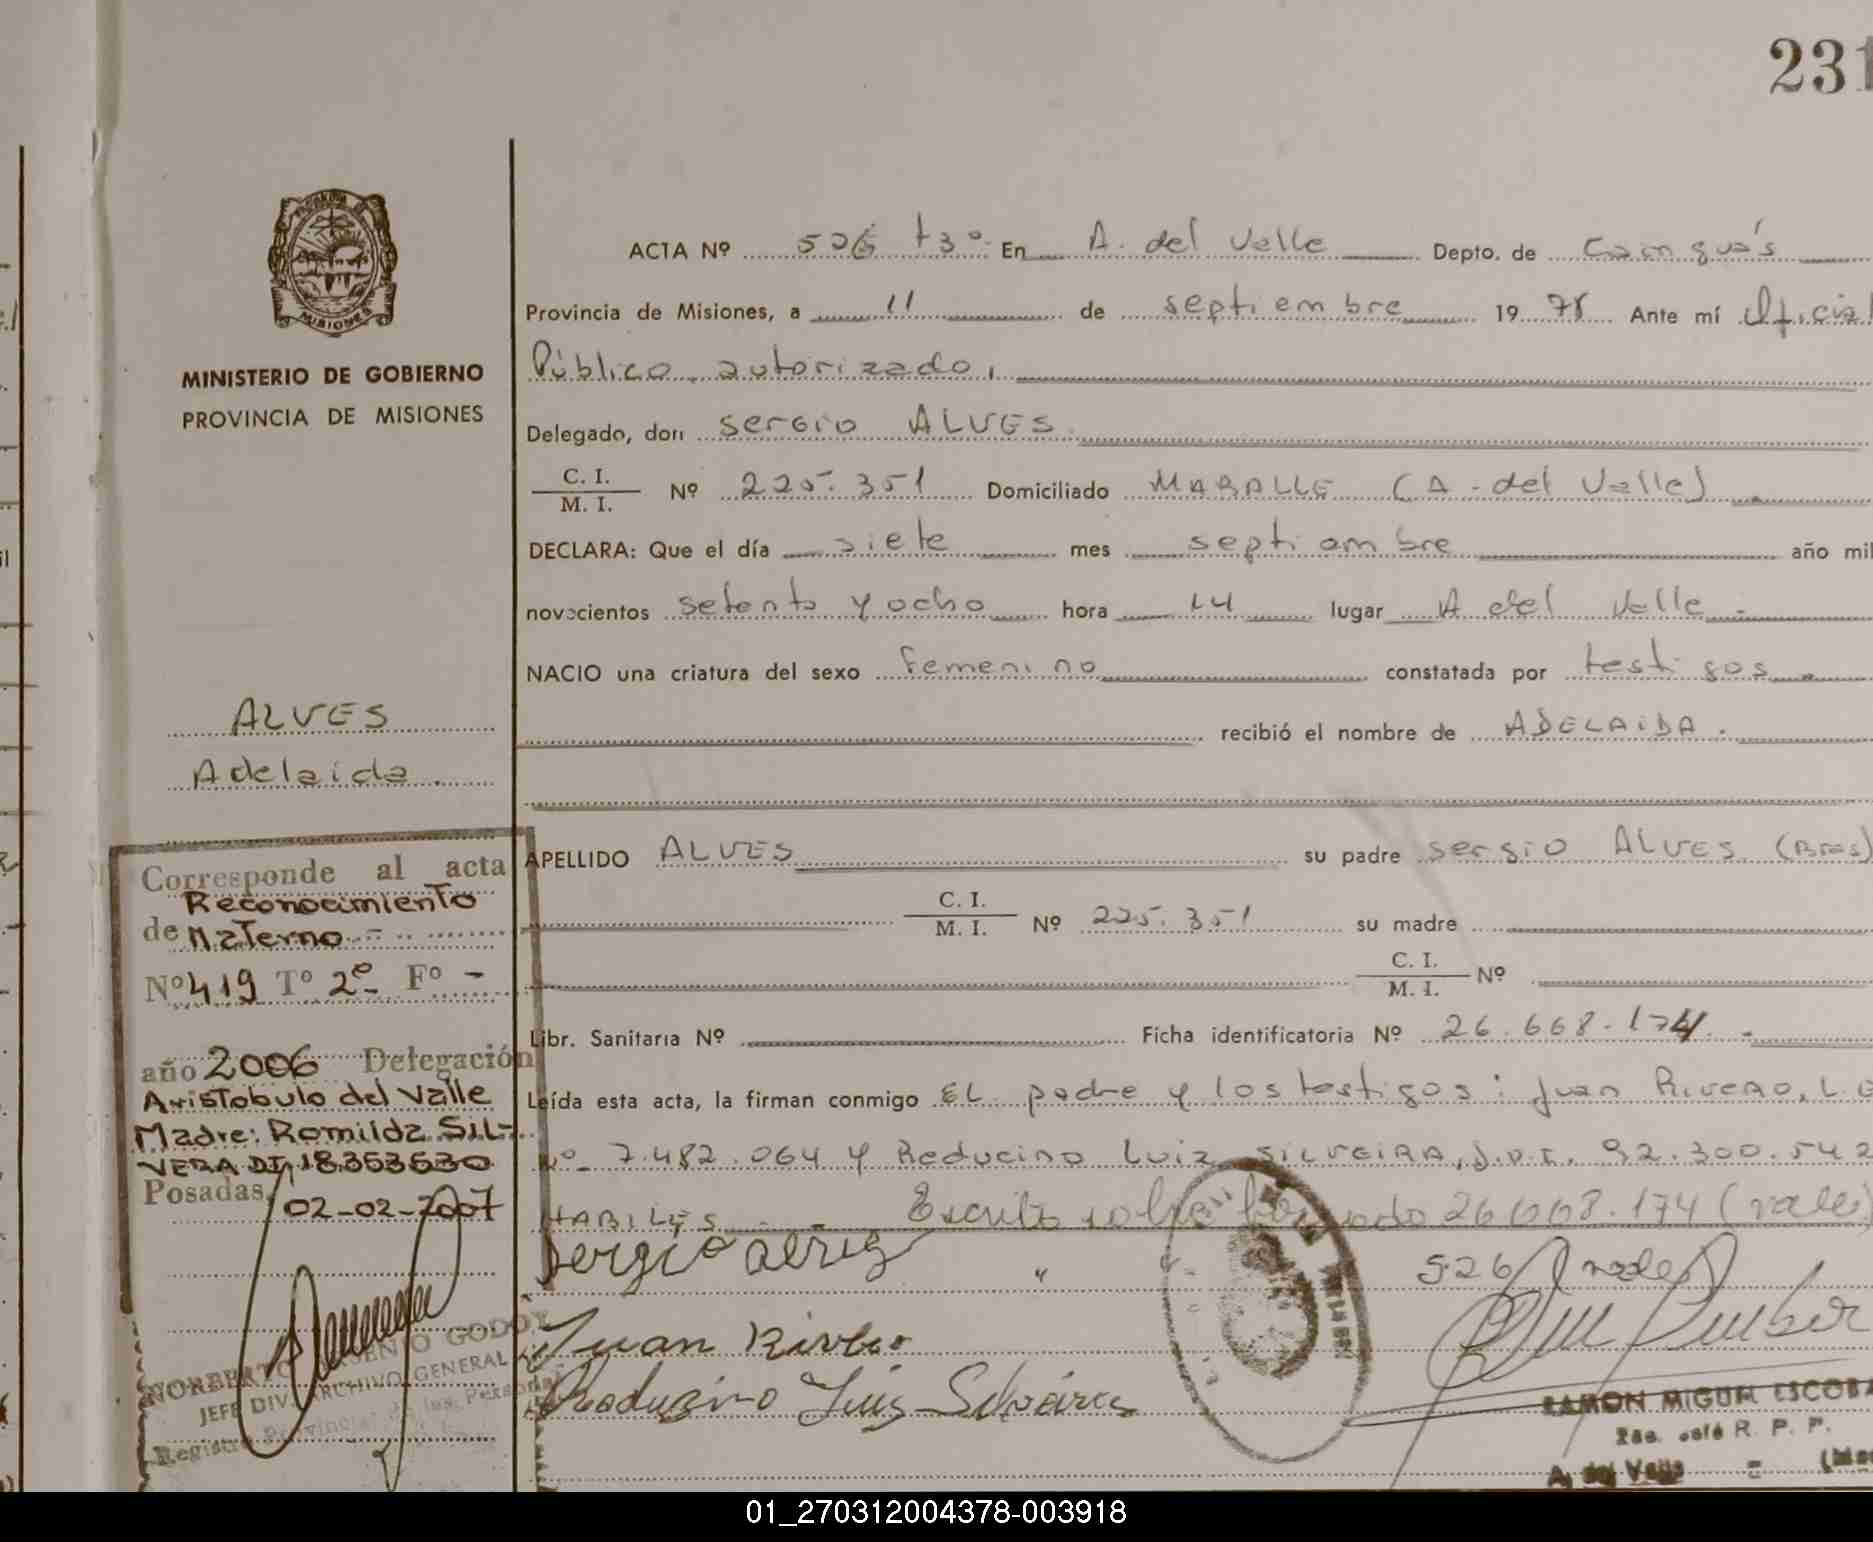 231
MISIONES
MINISTERIO DE GOBIERNO
PROVINCIA DE MISIONES
ALVES
Adelaida.
Corresponde al acta
Reconocimiento
de Materno
Nº 419 Tº 2º Fº -
año 2006 Delegación
Aristobulo del Valle
Madre: Romilda SIL-
VERA DI, 18353530
Posadas, 02-02-2007
NORBERTO GODOY
JEFE DIV. ARCHIVO GENERAL
Registro Provincial de las Personas
ACTA Nº 526 t3º En A. del Valle Depto. de Cainguás
Provincia de Misiones, a 11 de septiembre 1978 Ante mí Oficial
Público autorizado,
Delegado, don Sergio ALVES
C. I. / M. I. Nº 225.351 Domiciliado (A. del Valle)
DECLARA: Que el día siete mes septiembre año mil
novecientos setenta y ocho hora 14 lugar A del Valle -
NACIO una criatura del sexo femenino constatada por testigos
recibió el nombre de ADELAIDA.
APELLIDO ALVES su padre Sergio ALVES (Bras)
C. I. / M. I. Nº 225.351 su madre
C. I. / M. I. Nº
Libr. Sanitaria Nº Ficha identificatoria Nº 26.668.174 -
Leída esta acta, la firman conmigo EL padre y los testigos: Juan RIVERO, L.E
Nº 7.482.064 y Reducino Luiz SILVEIRA, D.N.I. 92.300.542
HABILES - Escrito sobre 26668.174 (vale)
526 vale
Juan Rivero
RAMON MIGUEL ESCOBA
R. P. P.
A. del Valle
01_270312004378-003918